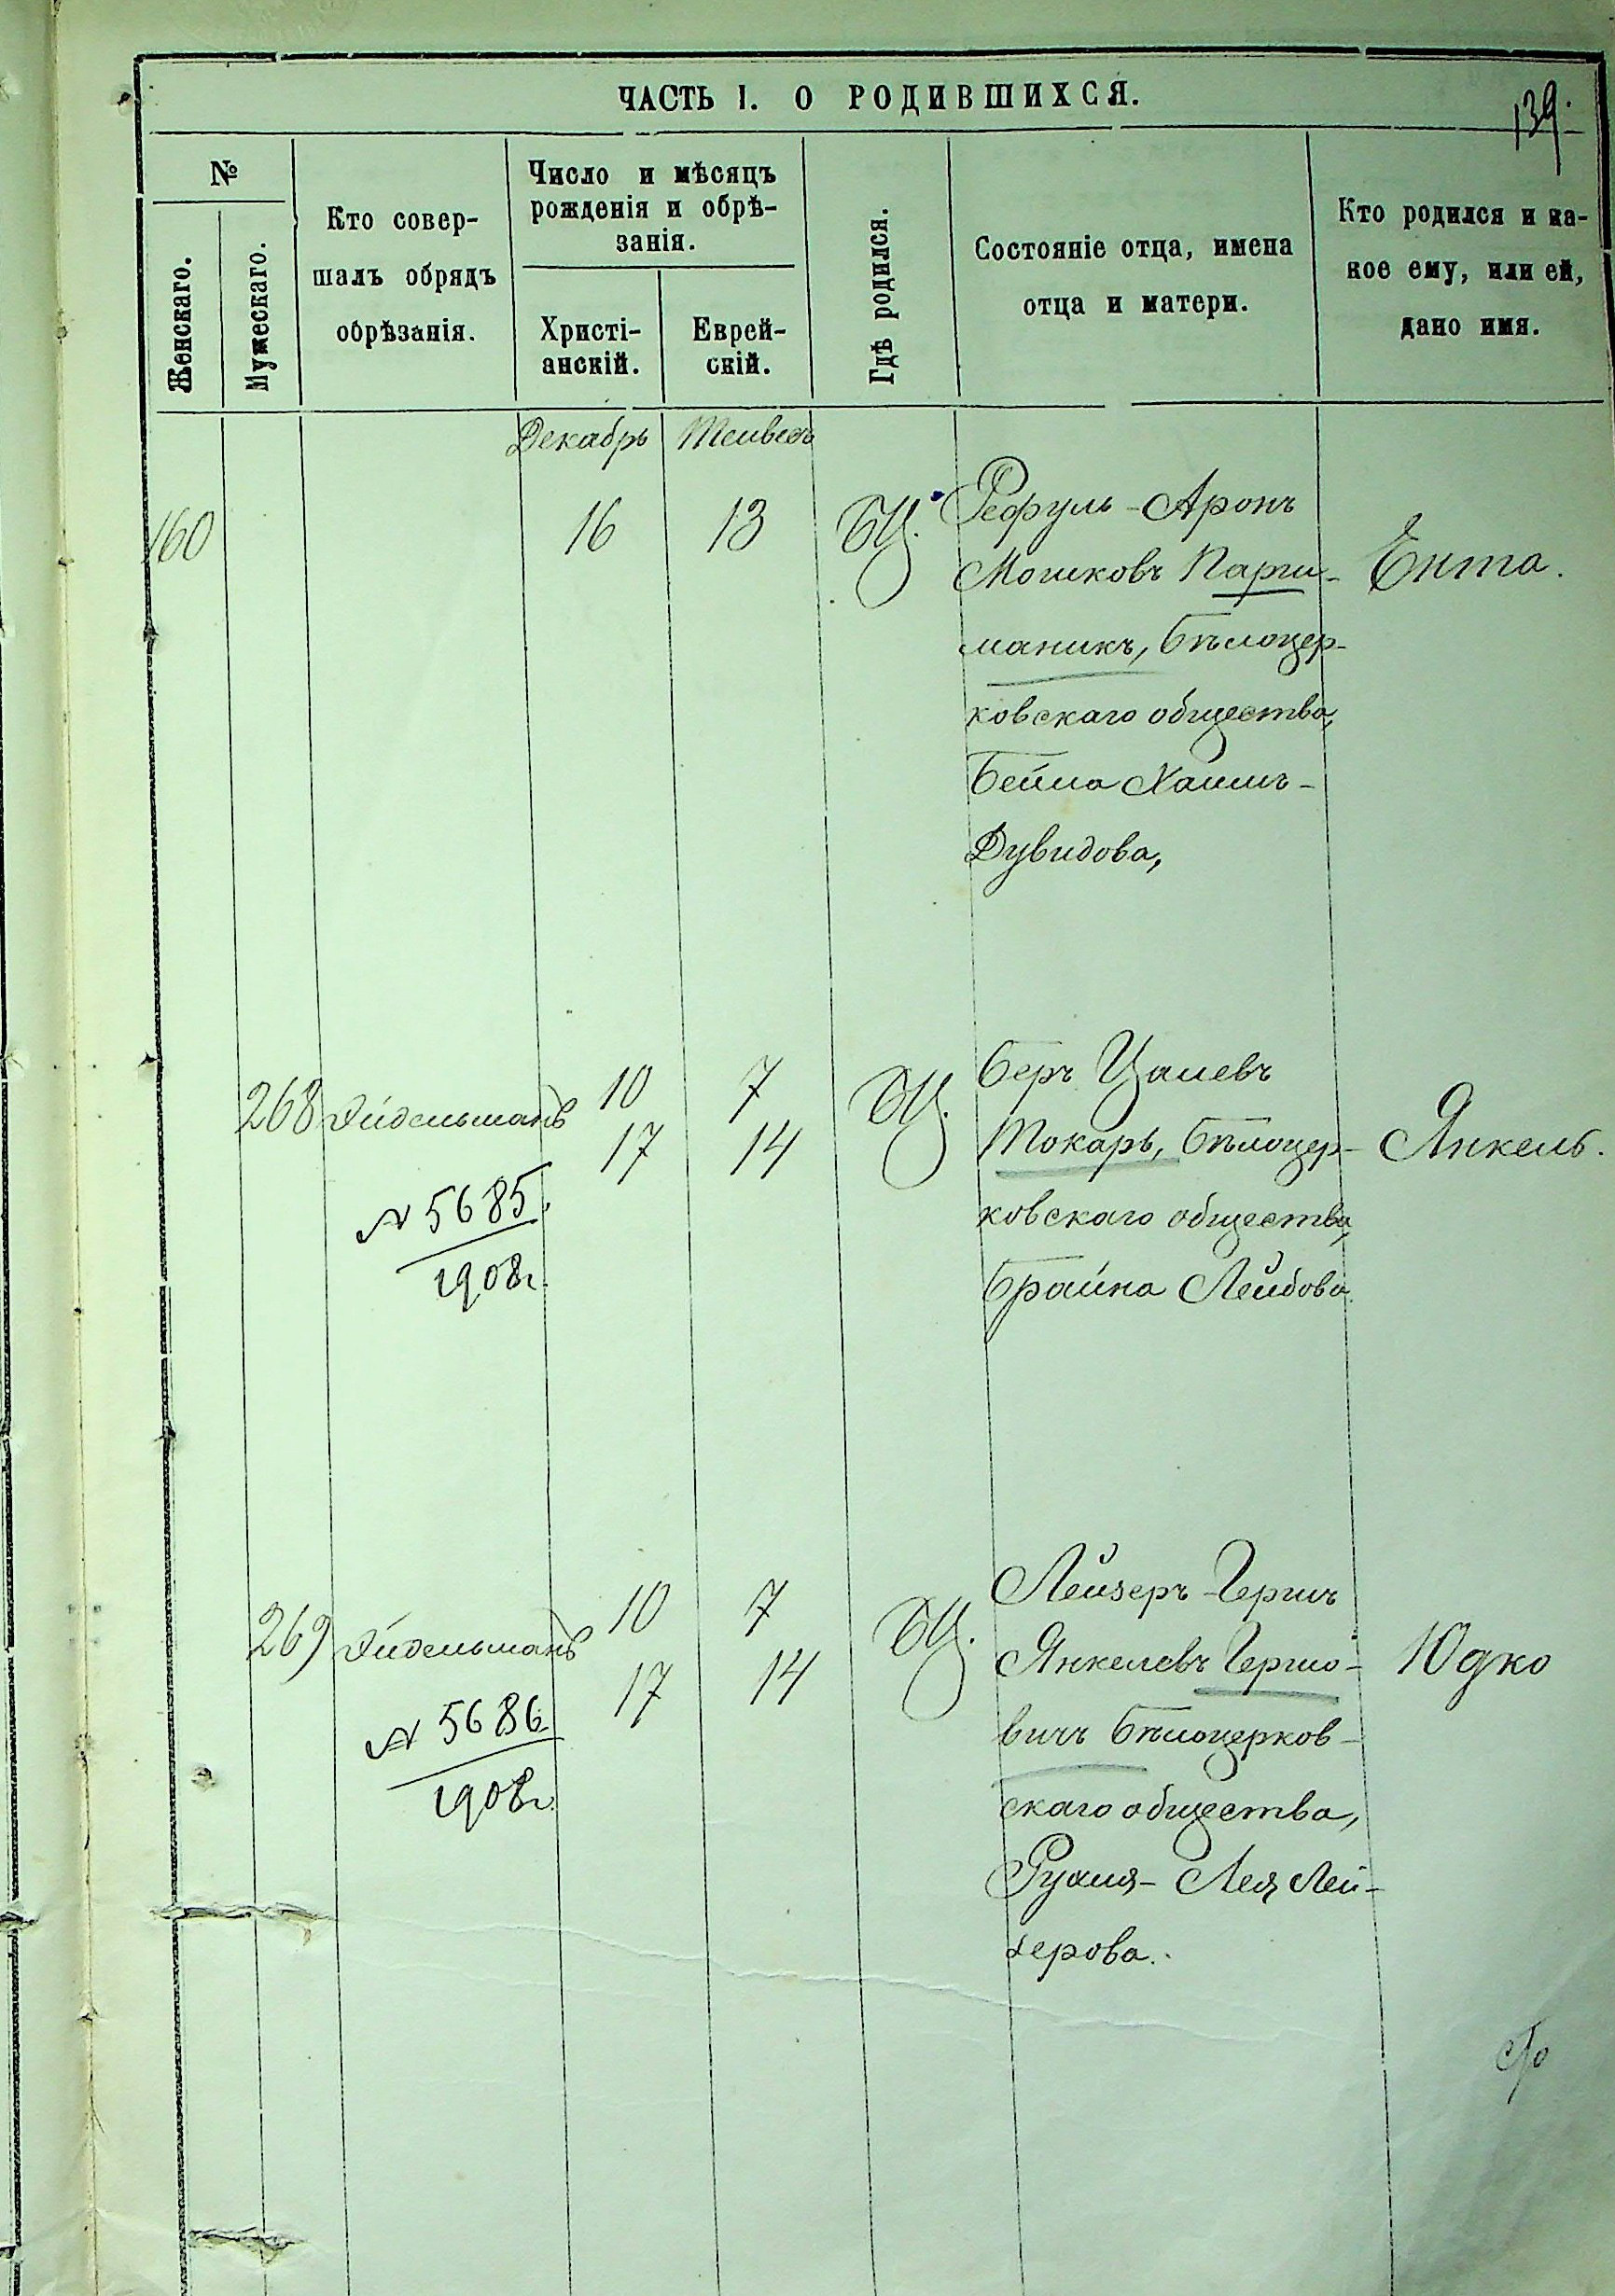 ЧАСТЬ I. О РОДИВШИХСЯ.
139.
№
Женскаго.
Мужескаго.
Кто совер-
шалъ обрядъ
обрѣзанія.
Число и мѣсяцъ
рожденія и обрѣ-
занія.
Христі-
анскій.
Еврей-
скій.
Гдѣ родился.
Состояніе отца, имена
отца и матери.
Кто родился и ка-
кое ему, или ей,
дано имя.
Декабрь
160
16
13
БЦ.
Рефуль-Аронъ
Мошковъ Парш-
маникъ, Бѣлоцер-
ковскаго общества,
Бейла Хаимъ-
Дувидова,
Ента.
268
Эйдельманъ
10
17
7
14
БЦ.
№ 5685
1908г.
Беръ Цалевъ
Токарь, Бѣлоцер-
ковскаго общества,
Брайна Лейбова.
Янкель.
269
Эйдельманъ
10
17
7
14
БЦ.
№ 5686
1908г.
Лейзеръ-Гершъ
Янкелевъ Гершо-
вичъ Бѣлоцерков-
скаго общества,
Рухля-Лея Лей-
зерова.
Юдко